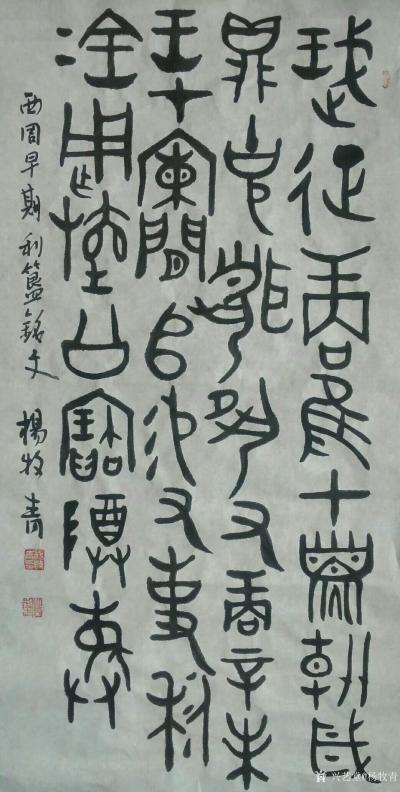 珷征商隹甲子朝歲
鼎克聞夙又商辛未
王才闌𠂤易又事利
金用乍檀公寶尊彝
西周早期利簋銘文 楊牧青
兴艺堂@杨牧青